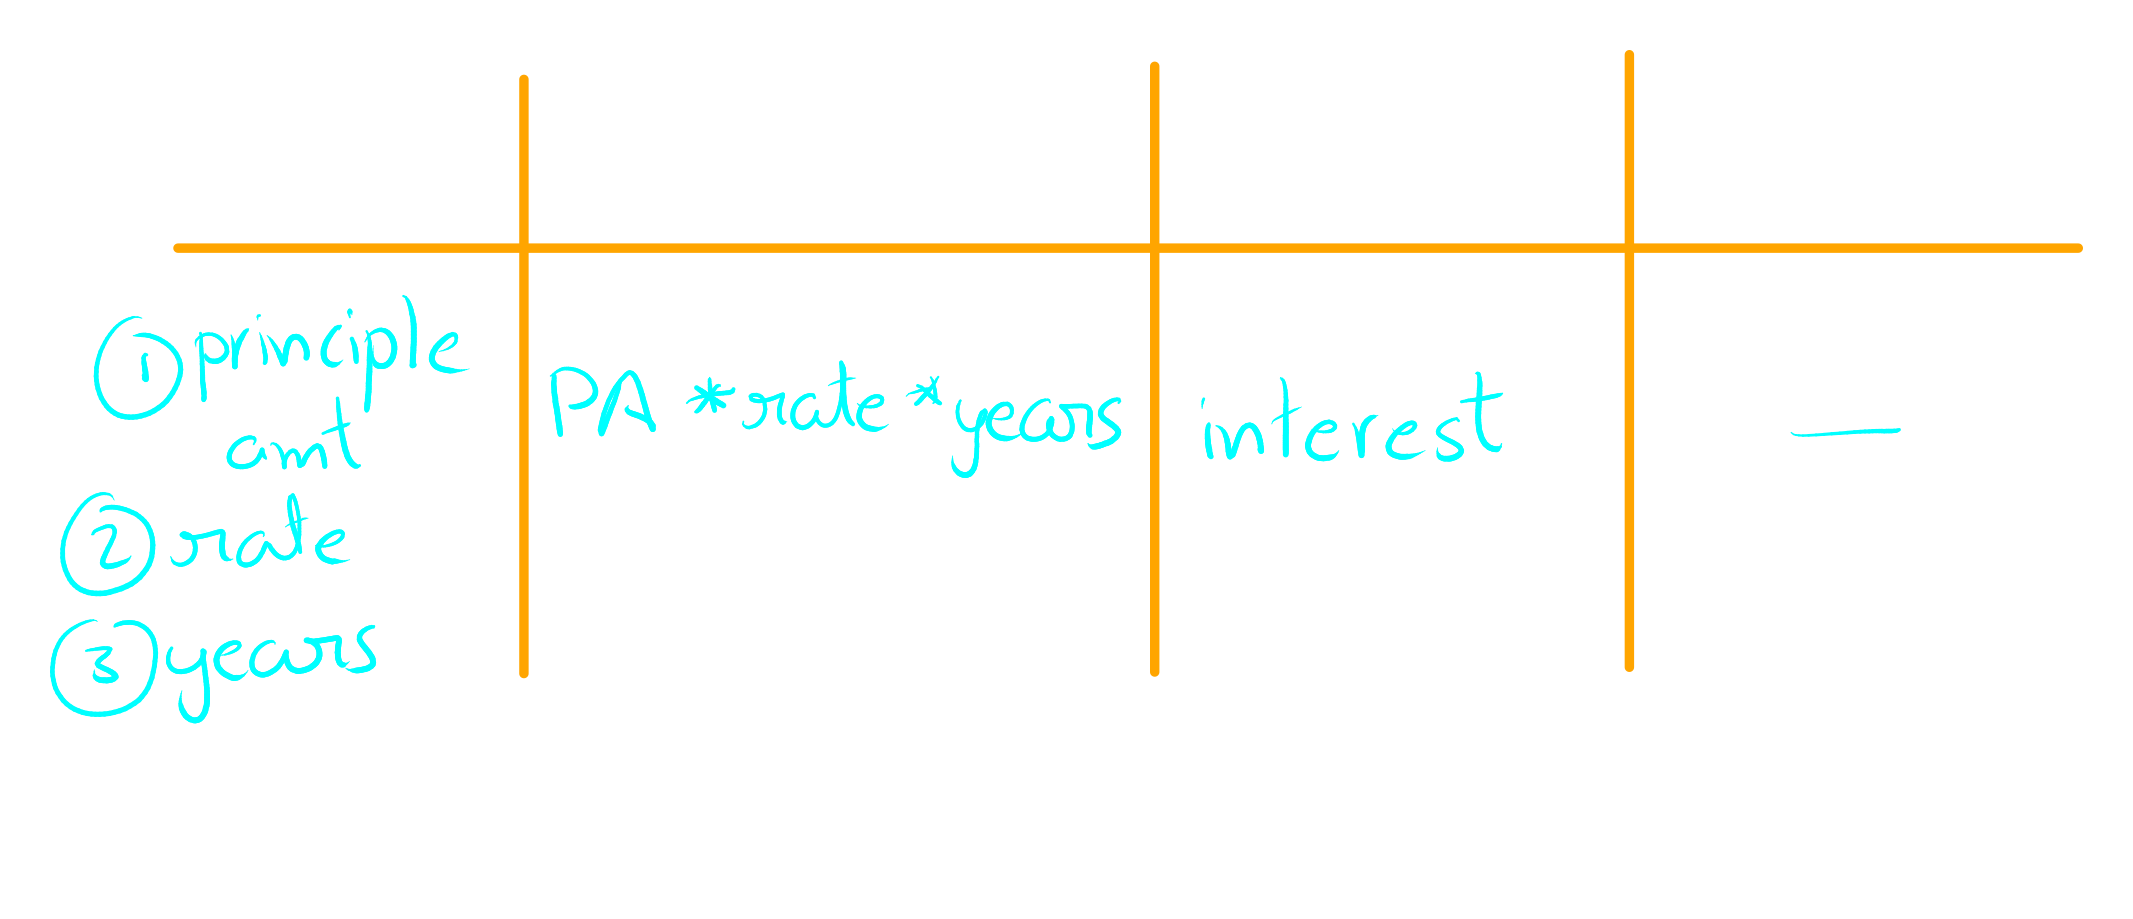 ① principle
amt
② rate
③ years
PA * rate * years
interest
—